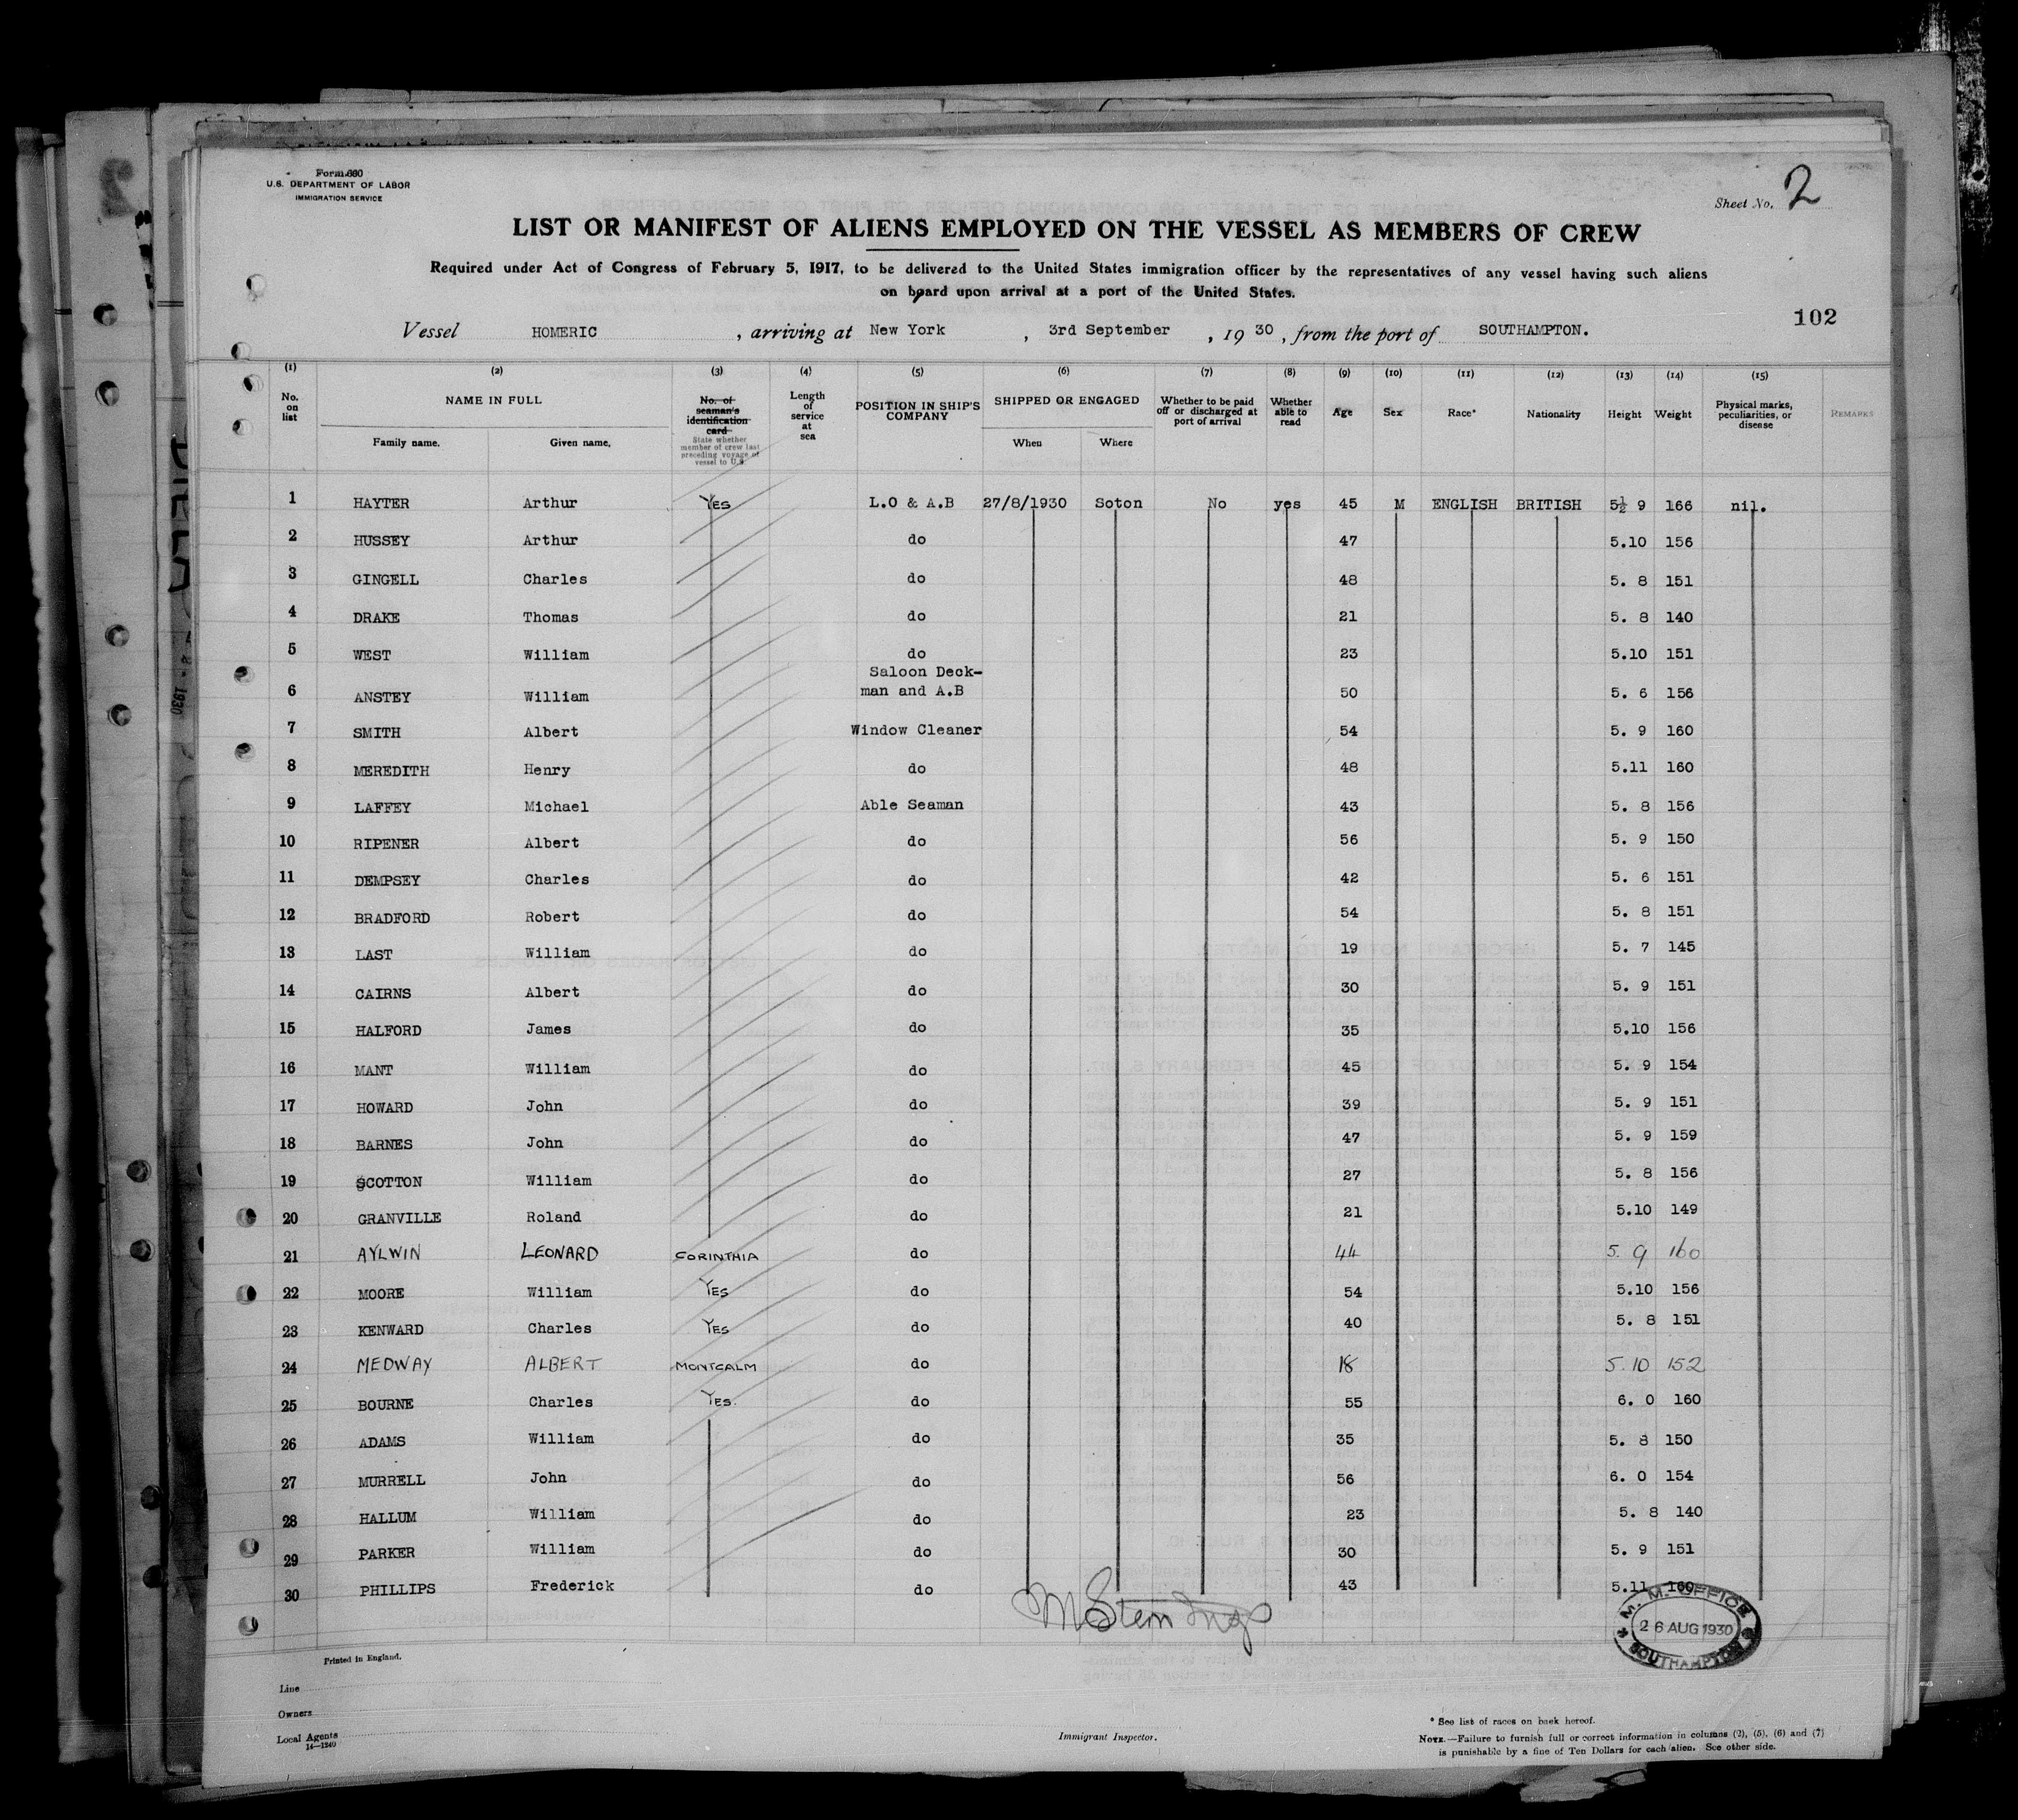 Form 680
U.S. DEPARTMENT OF LABOR
IMMIGRATION SERVICE
Sheet No. 2
LIST OR MANIFEST OF ALIENS EMPLOYED ON THE VESSEL AS MEMBERS OF CREW
Required under Act of Congress of February 5, 1917, to be delivered to the United States immigration officer by the representatives of any vessel having such aliens
on board upon arrival at a port of the United States.
102
Vessel HOMERIC , arriving at New York , 3rd September , 19 30 , from the port of SOUTHAMPTON.
(1) (2) (3) (4) (5) (6) (7) (8) (9) (10) (11) (12) (13) (14) (15)
No. on list NAME IN FULL Family name. Given name. No. of seaman's identification card State whether member of crew last preceding voyage of vessel to U.S. Length of service at sea POSITION IN SHIP'S COMPANY SHIPPED OR ENGAGED When Where Whether to be paid off or discharged at port of arrival Whether able to read Age Sex Race* Nationality Height Weight Physical marks, peculiarities, or disease REMARKS
1 HAYTER Arthur YES L.O & A.B 27/8/1930 Soton No yes 45 M ENGLISH BRITISH 5½ 9 166 nil.
2 HUSSEY Arthur do 47 5.10 156
3 GINGELL Charles do 48 5. 8 151
4 DRAKE Thomas do 21 5. 8 140
5 WEST William do 23 5.10 151
6 ANSTEY William Saloon Deck-man and A.B 50 5. 6 156
7 SMITH Albert Window Cleaner 54 5. 9 160
8 MEREDITH Henry do 48 5.11 160
9 LAFFEY Michael Able Seaman 43 5. 8 156
10 RIPENER Albert do 56 5. 9 150
11 DEMPSEY Charles do 42 5. 6 151
12 BRADFORD Robert do 54 5. 8 151
13 LAST William do 19 5. 7 145
14 CAIRNS Albert do 30 5. 9 151
15 HALFORD James do 35 5.10 156
16 MANT William do 45 5. 9 154
17 HOWARD John do 39 5. 9 151
18 BARNES John do 47 5. 9 159
19 SCOTTON William do 27 5. 8 156
20 GRANVILLE Roland do 21 5.10 149
21 AYLWIN LEONARD CORINTHIA do 44 5. 9 160
22 MOORE William YES do 54 5.10 156
23 KENWARD Charles YES do 40 5. 8 151
24 MEDWAY ALBERT MONTCALM do 18 5.10 152
25 BOURNE Charles YES. do 55 6. 0 160
26 ADAMS William do 35 5. 8 150
27 MURRELL John do 56 6. 0 154
28 HALLUM William do 23 5. 8 140
29 PARKER William do 30 5. 9 151
30 PHILLIPS Frederick do 43 5.11 160
M. M. OFFICE
26 AUG 1930
SOUTHAMPTON
Printed in England.
Line
Owners
Local Agents
14—1240
Immigrant Inspector.
* See list of races on back hereof.
NOTE.—Failure to furnish full or correct information in columns (2), (5), (6) and (7)
is punishable by a fine of Ten Dollars for each alien. See other side.